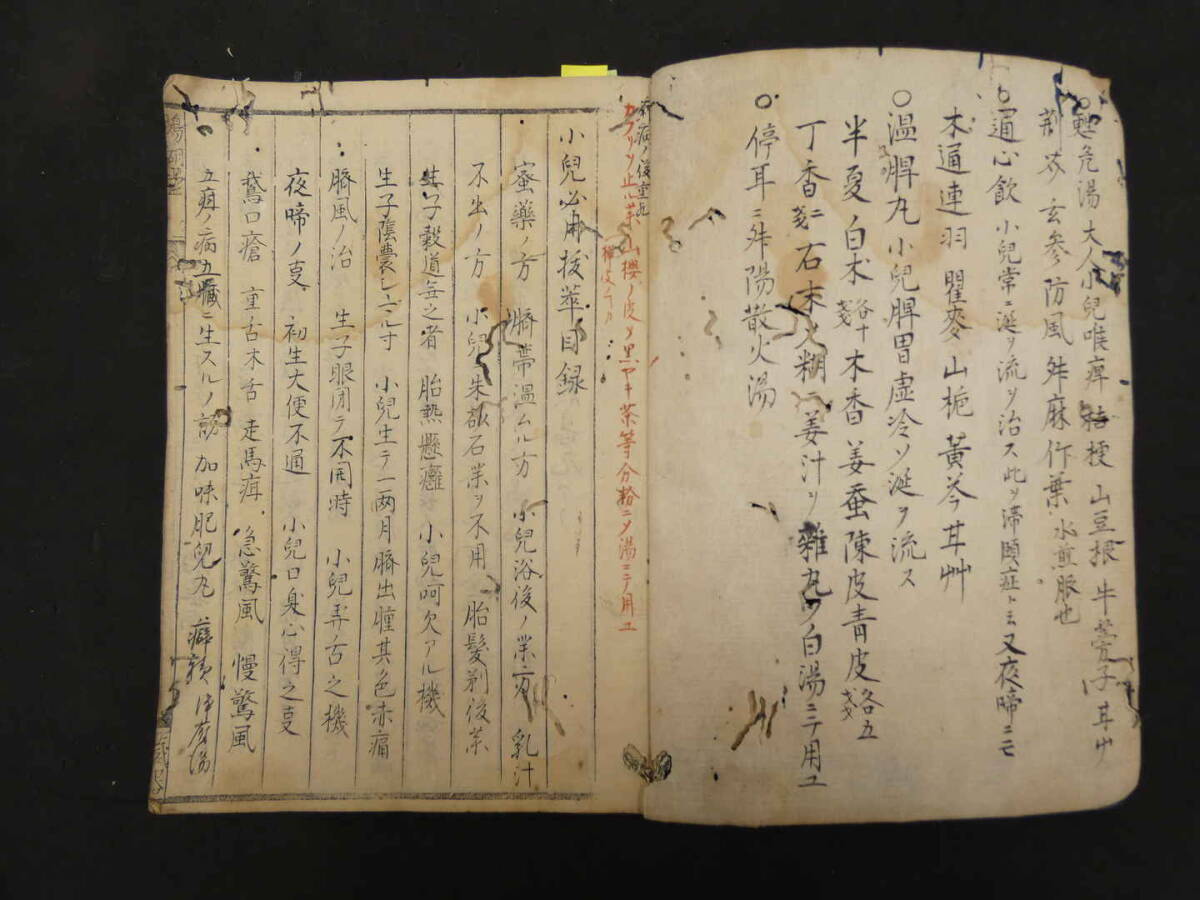 危湯 大人小兒喉痺 桔梗 山豆根 牛蒡子 甘艸
荊芥 玄参 防風 舛麻 竹葉 水煎服也
○通心飲 小兒常ニ涎ヲ流ヲ治ス此ヲ滞頤症ト云又夜啼ニモ
木通 連羽 瞿麥 山梔 黄芩 甘艸
○温脾丸 小兒脾胃虚冷ソ涎ヲ流ス
半夏 白朮 各十戔 木香 姜蚕 陳皮 青皮 各五戔
丁香 二戔 石末 糊 姜汁ヲ雜丸ソ白湯ニテ用ユ
○停耳ニ舛陽散火湯
病ノ後重丸
カブリヲ止ル薬 山櫻ノ皮ヲ黒ヤキ茶等分拾ニソ湯ニテ用ユ
小兒必用抜萃目録
蜜藥ノ方 臍帯温ムル方 小兒浴後ノ薬方 乳汁
不出ノ方 小兒朱 石薬ヲ不用 胎髪剃後薬
生子穀道無之者 胎熱 小兒呵欠アル機
生子陰嚢 小兒生テ一両月臍出腫其色赤痛
臍風ノ治 生子眼閉テ不開時 小兒弄舌之機
夜啼ノ支 初生大便不通 小兒口臭心得之支
鵞口瘡 重舌木舌 走馬疳 急驚風 慢驚風
五疳ノ病五臓ニ生スルノ 加味肥兒丸